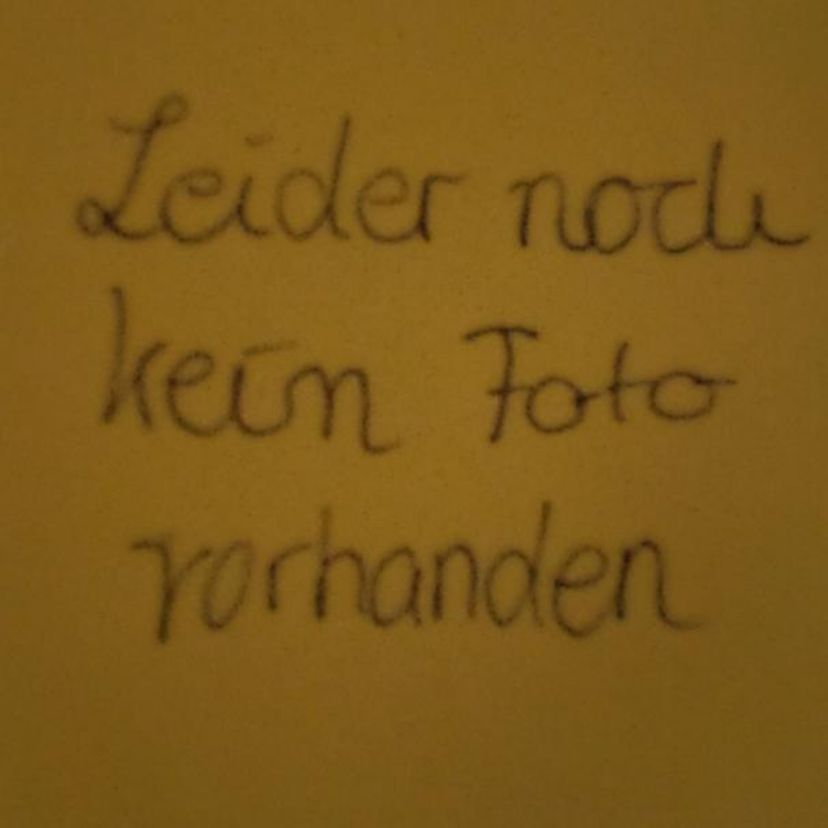 Leider noch
kein Foto
vorhanden